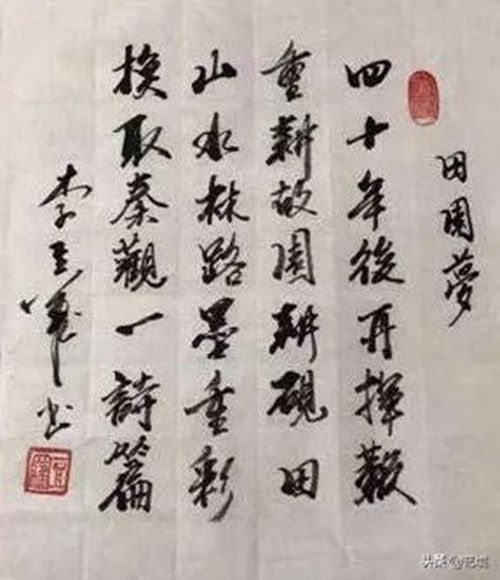 田園夢
四十年後再揮鞭
重耕故園耕硯田
山水林路墨重彩
換取秦觀一詩篇
李軍书
头条